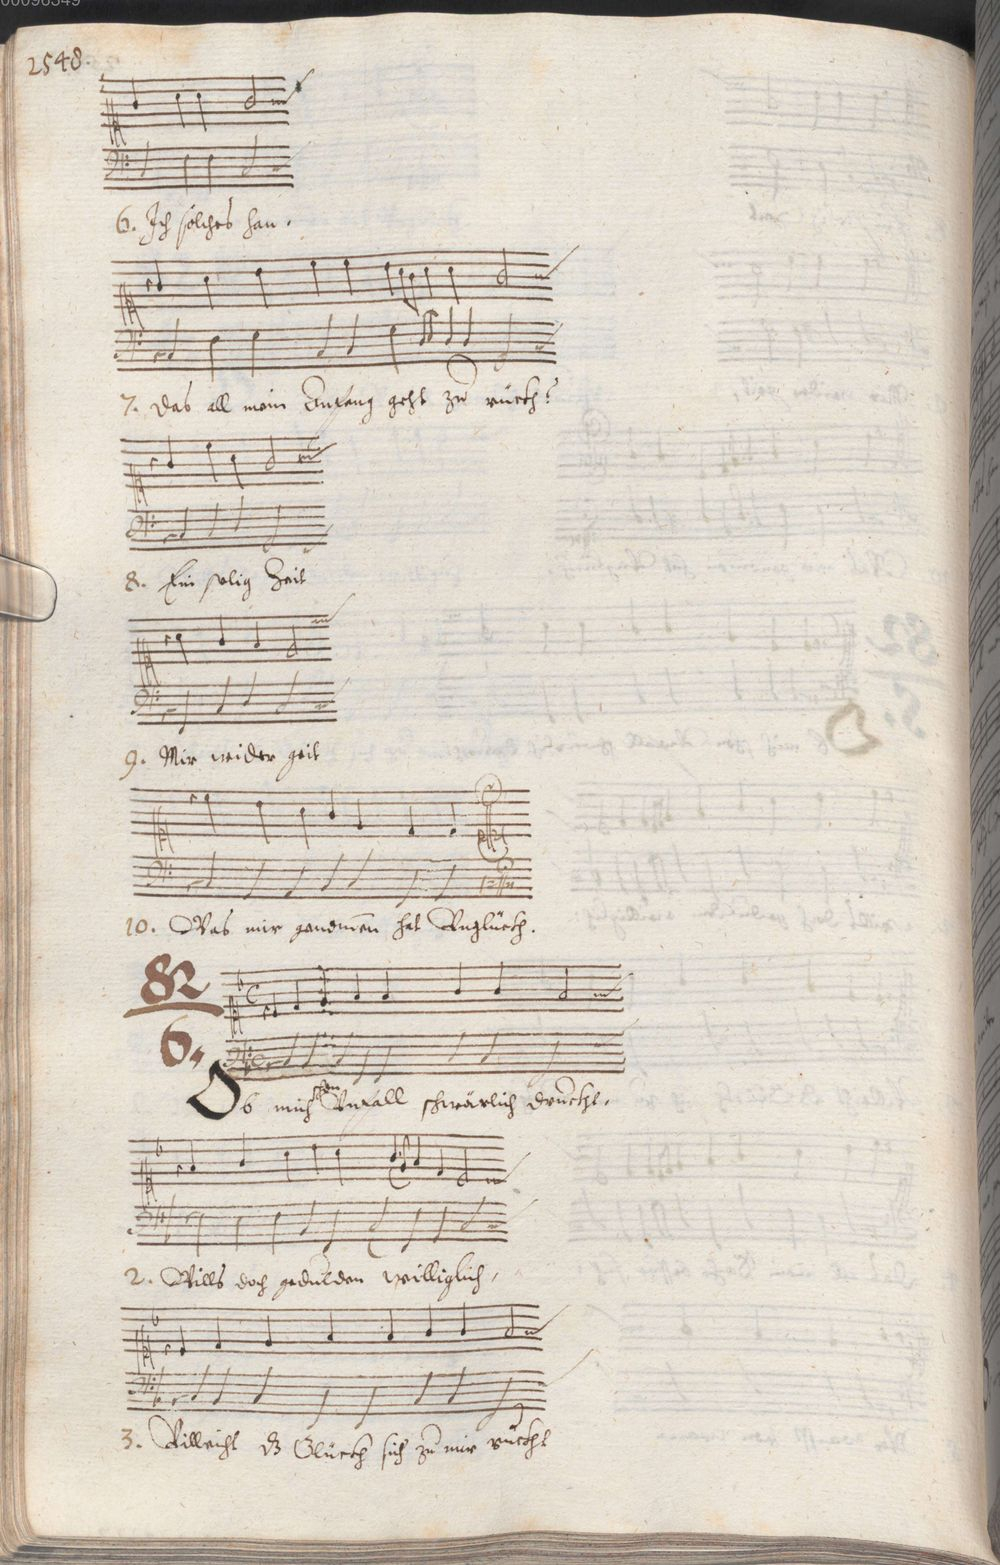 00096349
2548.
6. Ich solches han.
7. Das all mein Anfang geht zu rückh?
8. Ein selig Zeit
9. Mir wider geit
10. Was mir genomen hat Unglückh.
82
6.
Ob mich schon Unfall schwärlich druckht.
2. Wills doch gedulden williglich,
3. Villeicht dz Glückh sich zu mir ruckht